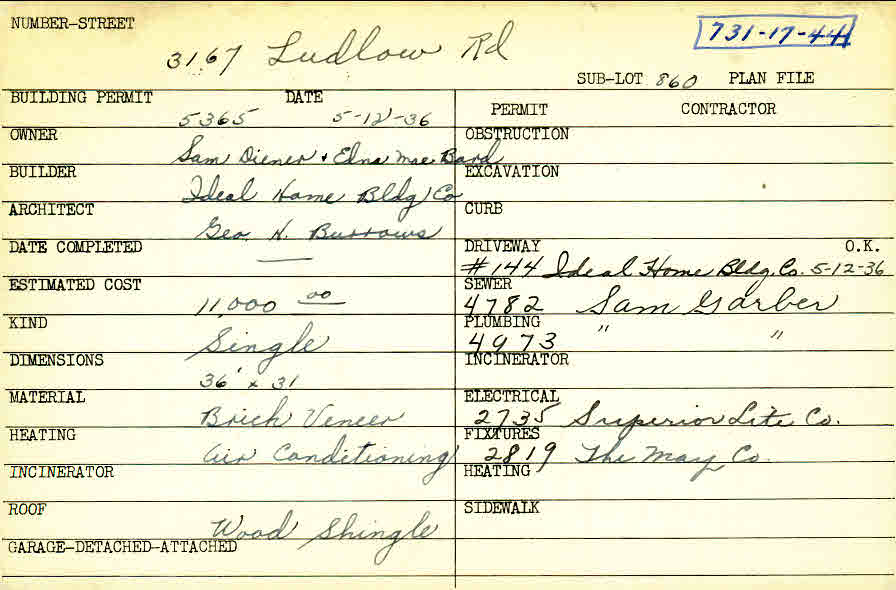 NUMBER-STREET
3167 Ludlow Rd
731-17-44
SUB-LOT 860 PLAN FILE
BUILDING PERMIT DATE
5365 5-12-36
OWNER
Sam Diener & Edna Mae Bard
BUILDER
Ideal Home Bldg Co
ARCHITECT
Geo. H. Burrows
DATE COMPLETED
—
ESTIMATED COST
11,000 00
KIND
Single
DIMENSIONS
36' x 31
MATERIAL
Brick Veneer
HEATING
Air Conditioning
INCINERATOR
ROOF
Wood Shingle
GARAGE-DETACHED-ATTACHED
PERMIT CONTRACTOR
OBSTRUCTION
EXCAVATION
CURB
DRIVEWAY O.K.
#144 Ideal Home Bldg. Co. 5-12-36
SEWER
4782 Sam Garber
PLUMBING
4973 " "
INCINERATOR
ELECTRICAL
2735 Superior Lite Co.
FIXTURES
2819 The May Co.
HEATING
SIDEWALK